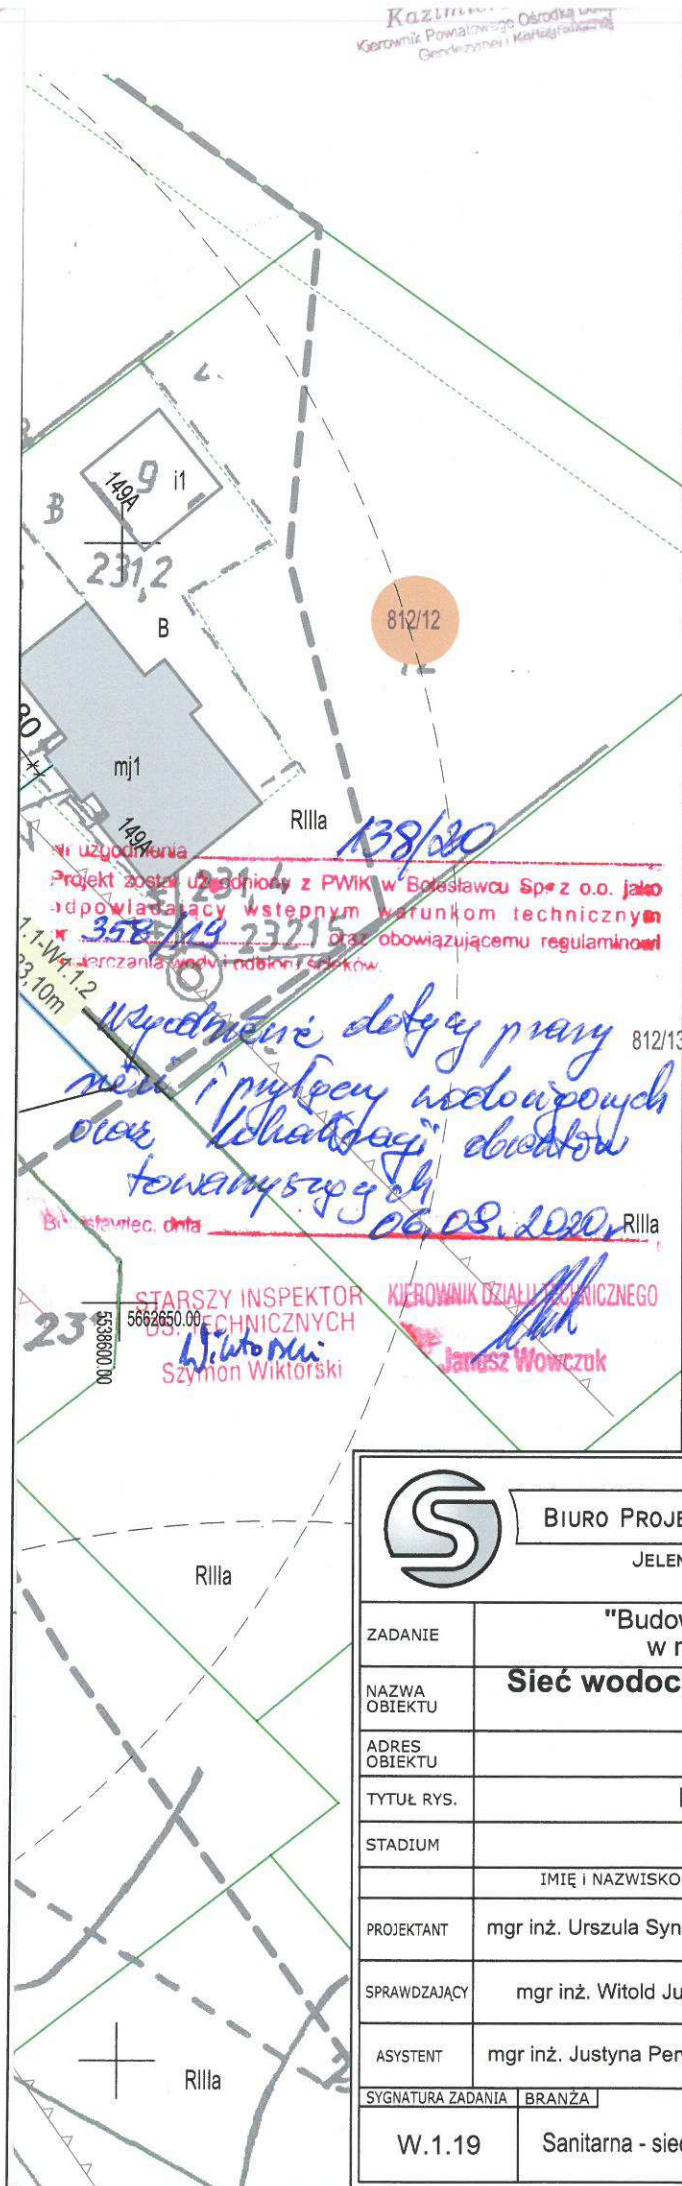 Kierownik Powiatowego Ośrodka
9 i1
149A
B
231,2
B
812/12
80
mj1
149A
RIIIa
Nr uzgodnienia 138/20
Projekt został uzgodniony z PWiK w Bolesławcu Sp. z o.o. jako
odpowiadający wstępnym warunkom technicznym
358/19 oraz obowiązującemu regulaminowi
dostarczania wody i odbioru ścieków.
231,4
23215
1.1-W1.1.2
23,10m
812/13
Uzgodnienie dotyczy
sieci i przyłączy wodociągowych
oraz lokalizacji obiektów
towarzyszących
Bolesławiec, dnia 06.08.2020r
RIIIa
STARSZY INSPEKTOR
DS. TECHNICZNYCH
Wiktorski
Szymon Wiktorski
KIEROWNIK DZIAŁU TECHNICZNEGO
Janusz Wowczuk
23
5662650.00
5538600.00
RIIIa
RIIIa
2
S
BIURO PROJE
JELEN
ZADANIE
"Budow
w m
NAZWA
OBIEKTU
Sieć wodoc
ADRES
OBIEKTU
TYTUŁ RYS.
STADIUM
IMIĘ i NAZWISKO
PROJEKTANT
mgr inż. Urszula Syn
SPRAWDZAJĄCY
mgr inż. Witold Ju
ASYSTENT
mgr inż. Justyna Per
SYGNATURA ZADANIA
BRANŻA
W.1.19
Sanitarna - sieć